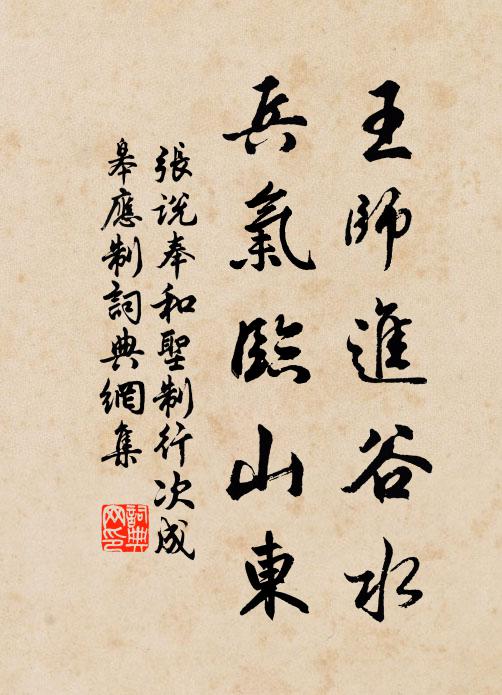 王師進谷水
兵氣臨山東
張説奉和聖制行次成
皋應制詞典網集
詞典网印